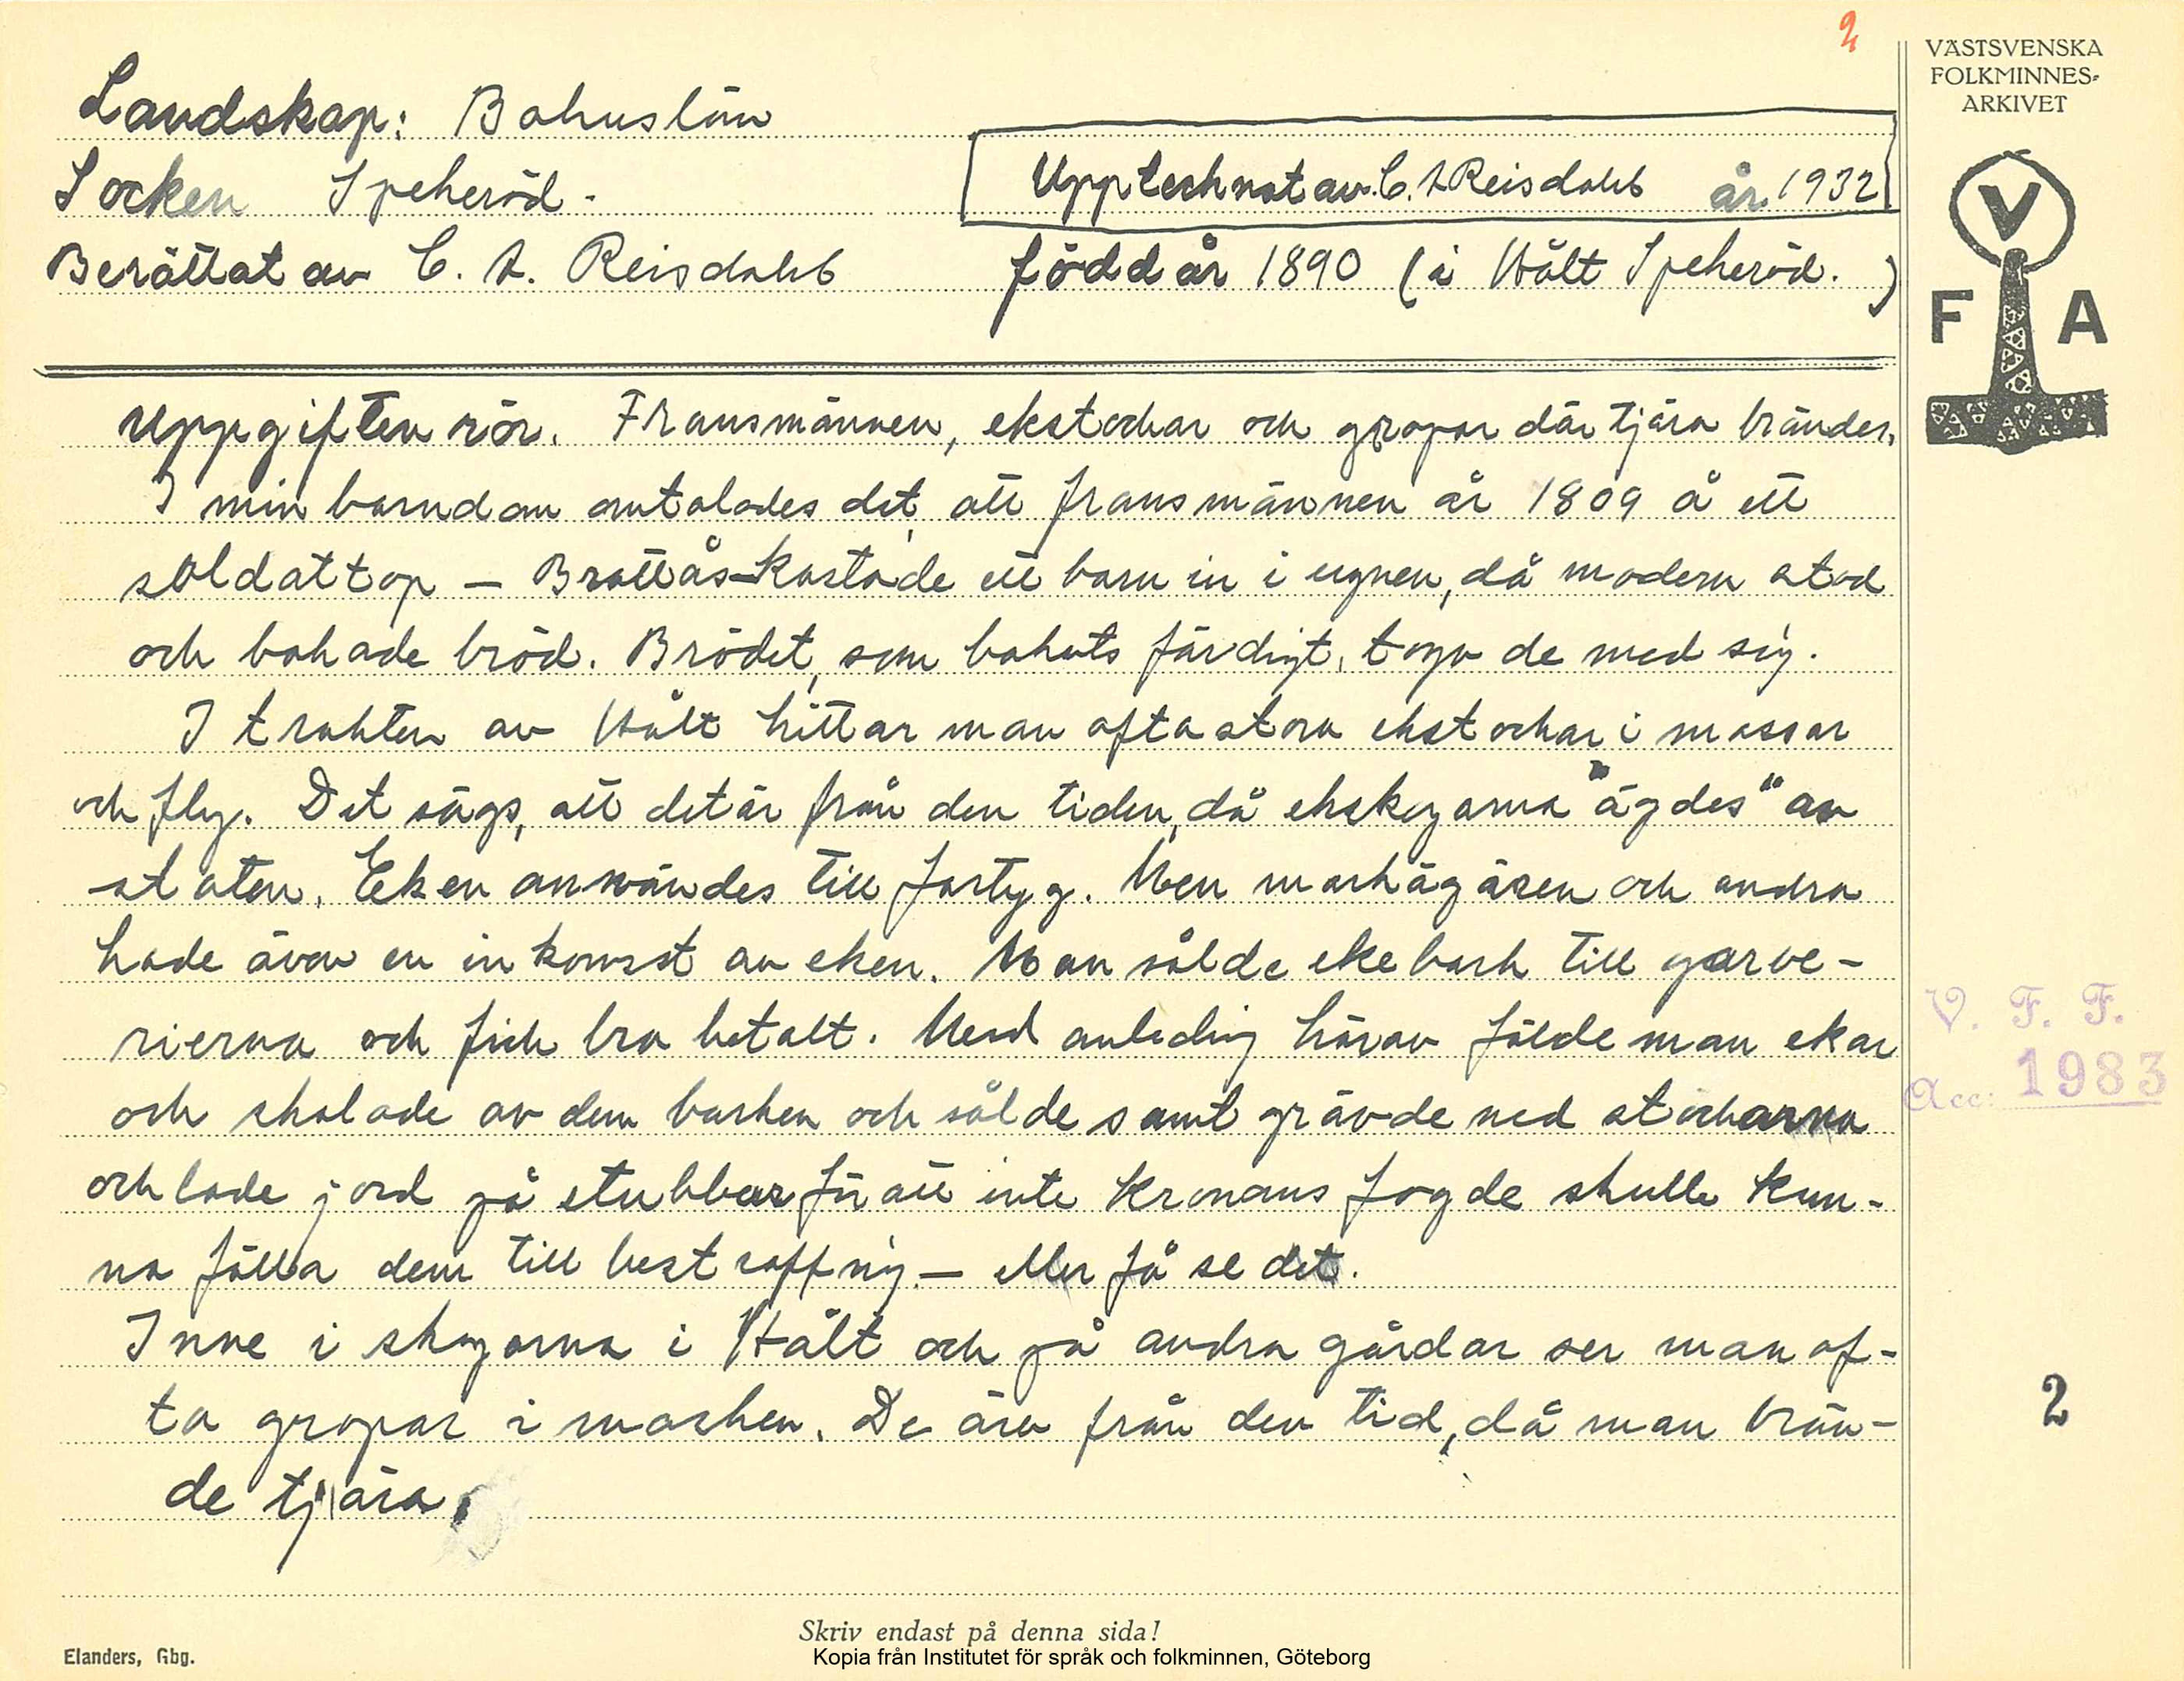 2
VÄSTSVENSKA
FOLKMINNES-
ARKIVET
V
F A
Landskap: Bohuslän
Socken Spekeröd.
Upptecknat av C. A Reisdahl år 1932
Berättat av C. A. Reisdahl född år 1890 (i Hält Spekeröd.)
Uppgiften rör. Fransmännen, ekstockar och gropar där tjära brändes.
I min barndom omtalades det, att fransmännen år 1809 å ett
soldattop – Brattås – kastade ett barn in i ugnen, då modern stod
och bakade bröd. Brödet, som bakats färdigt, togo de med sig.
I trakten av Hält hittar man ofta stora ekstockar i mossar
och fly. Det sägs, att det är från den tiden, då ekskogarna "ägdes" av
staten. Eken användes till fartyg. Men markägaren och andra
hade även en inkomst av eken. Man sålde ekebark till garve-
rierna och fick bra betalt. Med anleding härav fälde man ekar
och skalade av dem barken och sålde samt grävde ned stockarna
och lade jord på stubbar för att inte kronans fogde skulle kun-
na fälla dem till bestraffnig – eller få se det.
Inne i skogarna i Hält och på andra gårdar ser man of-
ta gropar i marken. De äro från den tid, då man brän-
de tjära.
V. F. F.
Acc: 1983
2
Skriv endast på denna sida!
Elanders, Gbg.
Kopia från Institutet för språk och folkminnen, Göteborg